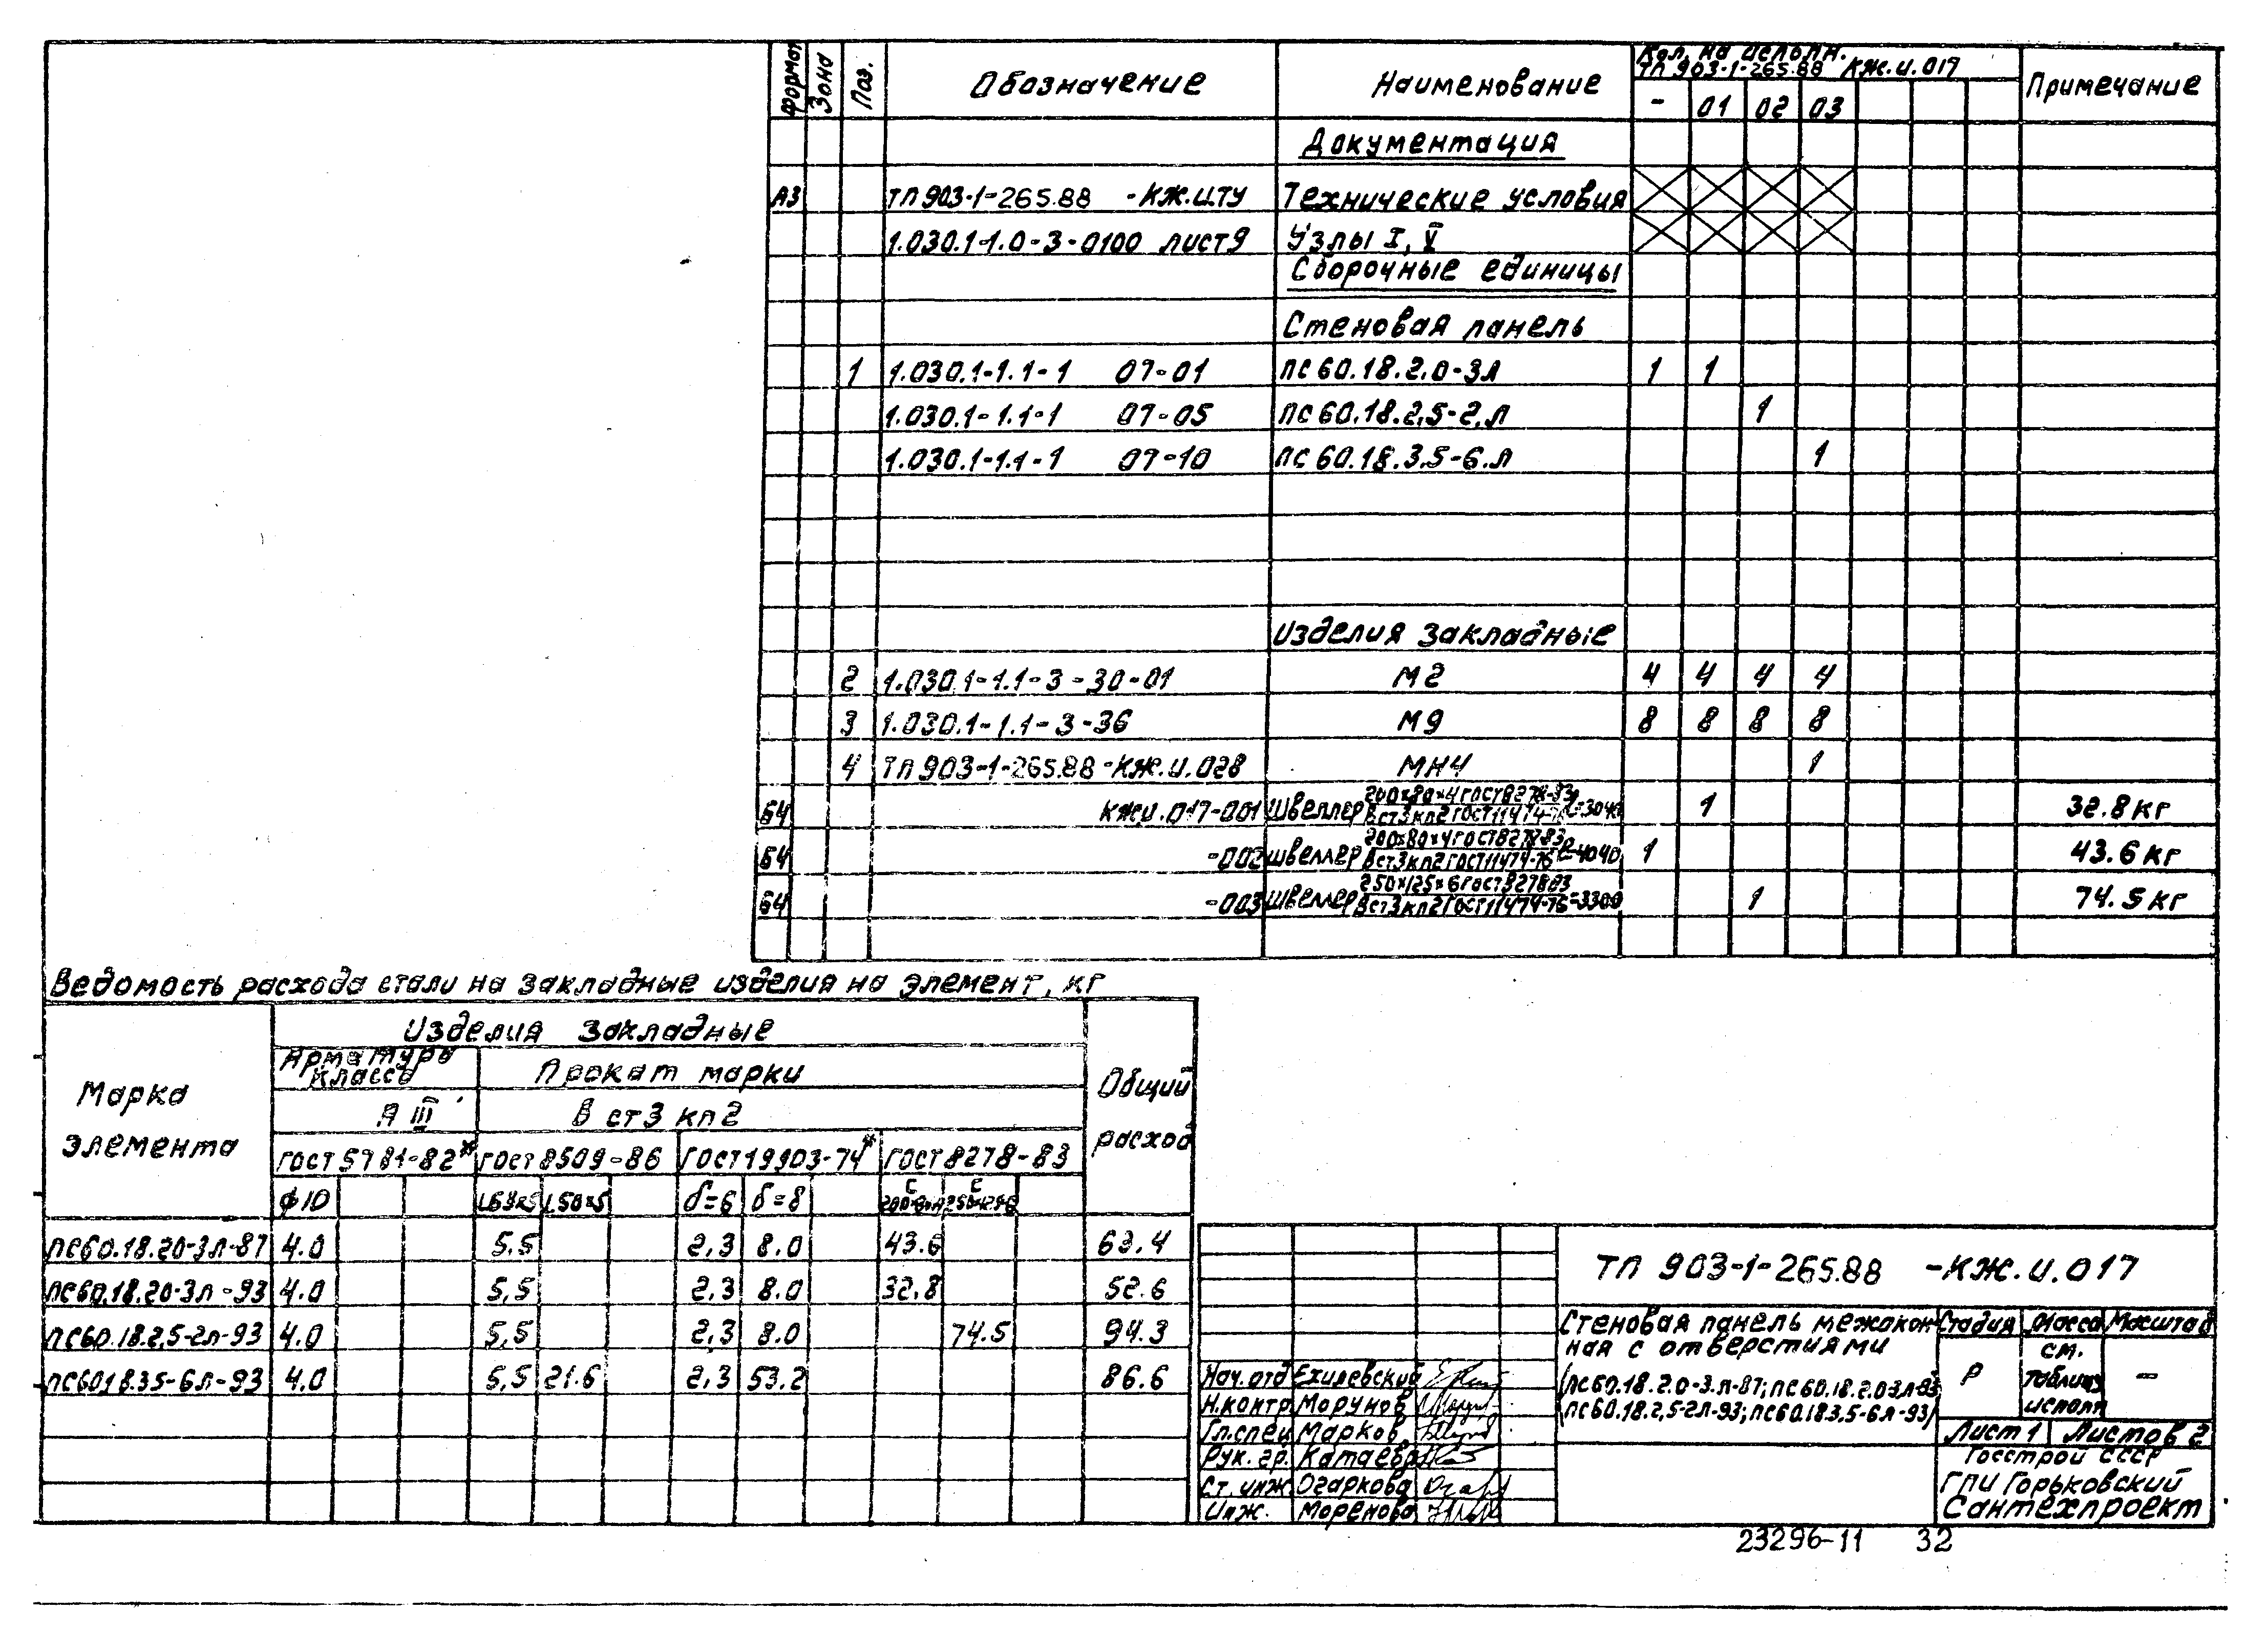 Формат Зона Поз. Обозначение Наименование Кол. на исполн. Примечание
ТП 903-1-265.88 КЖ.И.017
- 01 02 03
Документация
А3 ТП 903-1-265.88 -КЖ.И.ТУ Технические условия
1.030.1-1.0-3-0100 лист 9 Узлы I, V
Сборочные единицы
Стеновая панель
1 1.030.1-1.1-1 07-01 ПС 60.18.2.0-3Л 1 1
1.030.1-1.1-1 07-05 ПС 60.18.2,5-2.Л 1
1.030.1-1.1-1 07-10 ПС 60.18.3.5-6.Л 1
Изделия закладные
2 1.030.1-1.1-3-30-01 М2 4 4 4 4
3 1.030.1-1.1-3-36 М9 8 8 8 8
4 ТП 903-1-265.88-КЖ.И.028 МН4 1
Б4 КЖИ.017-001 Швеллер 200х80х4 ГОСТ 8278-83 / Вст3кп2 ГОСТ 11474-76 ℓ=3040 1 32.8 кг
Б4 -002 Швеллер 200х80х4 ГОСТ 8278-83 / Вст3кп2 ГОСТ 11474-76 ℓ=4040 1 43.6 кг
Б4 -003 Швеллер 250х125х6 ГОСТ 8278-83 / Вст3кп2 ГОСТ 11474-76 =3300 1 74.5 кг
Ведомость расхода стали на закладные изделия на элемент, кг
Марка элемента Изделия закладные Общий расход
Арматура класса Прокат марки
А III В ст3 кп2
ГОСТ 5781-82* ГОСТ 8509-86 ГОСТ 19903-74* ГОСТ 8278-83
ф10 L63х5 L50х5 δ=6 δ=8 С 200х80х4 С 250х125х6
ПС60.18.20-3Л-87 4.0 5.5 2,3 8.0 43.6 63.4
ПС60.18.20-3Л-93 4.0 5,5 2,3 8.0 32.8 52.6
ПС60.18.2,5-2Л-93 4.0 5,5 2,3 8.0 74.5 94.3
ПС60.18.3.5-6Л-93 4.0 5,5 21.6 2,3 53.2 86.6
ТП 903-1-265.88 -КЖ.И.017
Стеновая панель межокон-
ная с отверстиями
(ПС60.18.2.0-3.Л-87; ПС60.18.2.0-3Л-93
ПС60.18.2,5-2Л-93; ПС60.18.3.5-6Л-93)
Стадия Масса Масштаб
Р см. таблицу исполн -
Лист 1 Листов 2
Нач.отд Ехилевский
Н.контр Морунов
Гл.спец Марков
Рук. гр. Катаева
Ст. инж. Огаркова
Инж. Моренова
Госстрой СССР
ГПИ Горьковский
Сантехпроект
23296-11 32